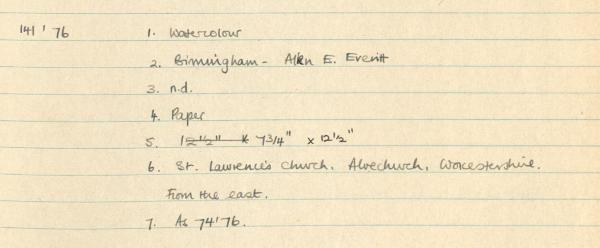 141'76 1. Watercolour
2. Birmingham - Allen E. Everitt
3. n.d.
4. Paper
5. 12½" x 7¾" x 12½"
6. St. Lawrence's Church, Alvechurch, Worcestershire.
From the east.
7. As 74'76.